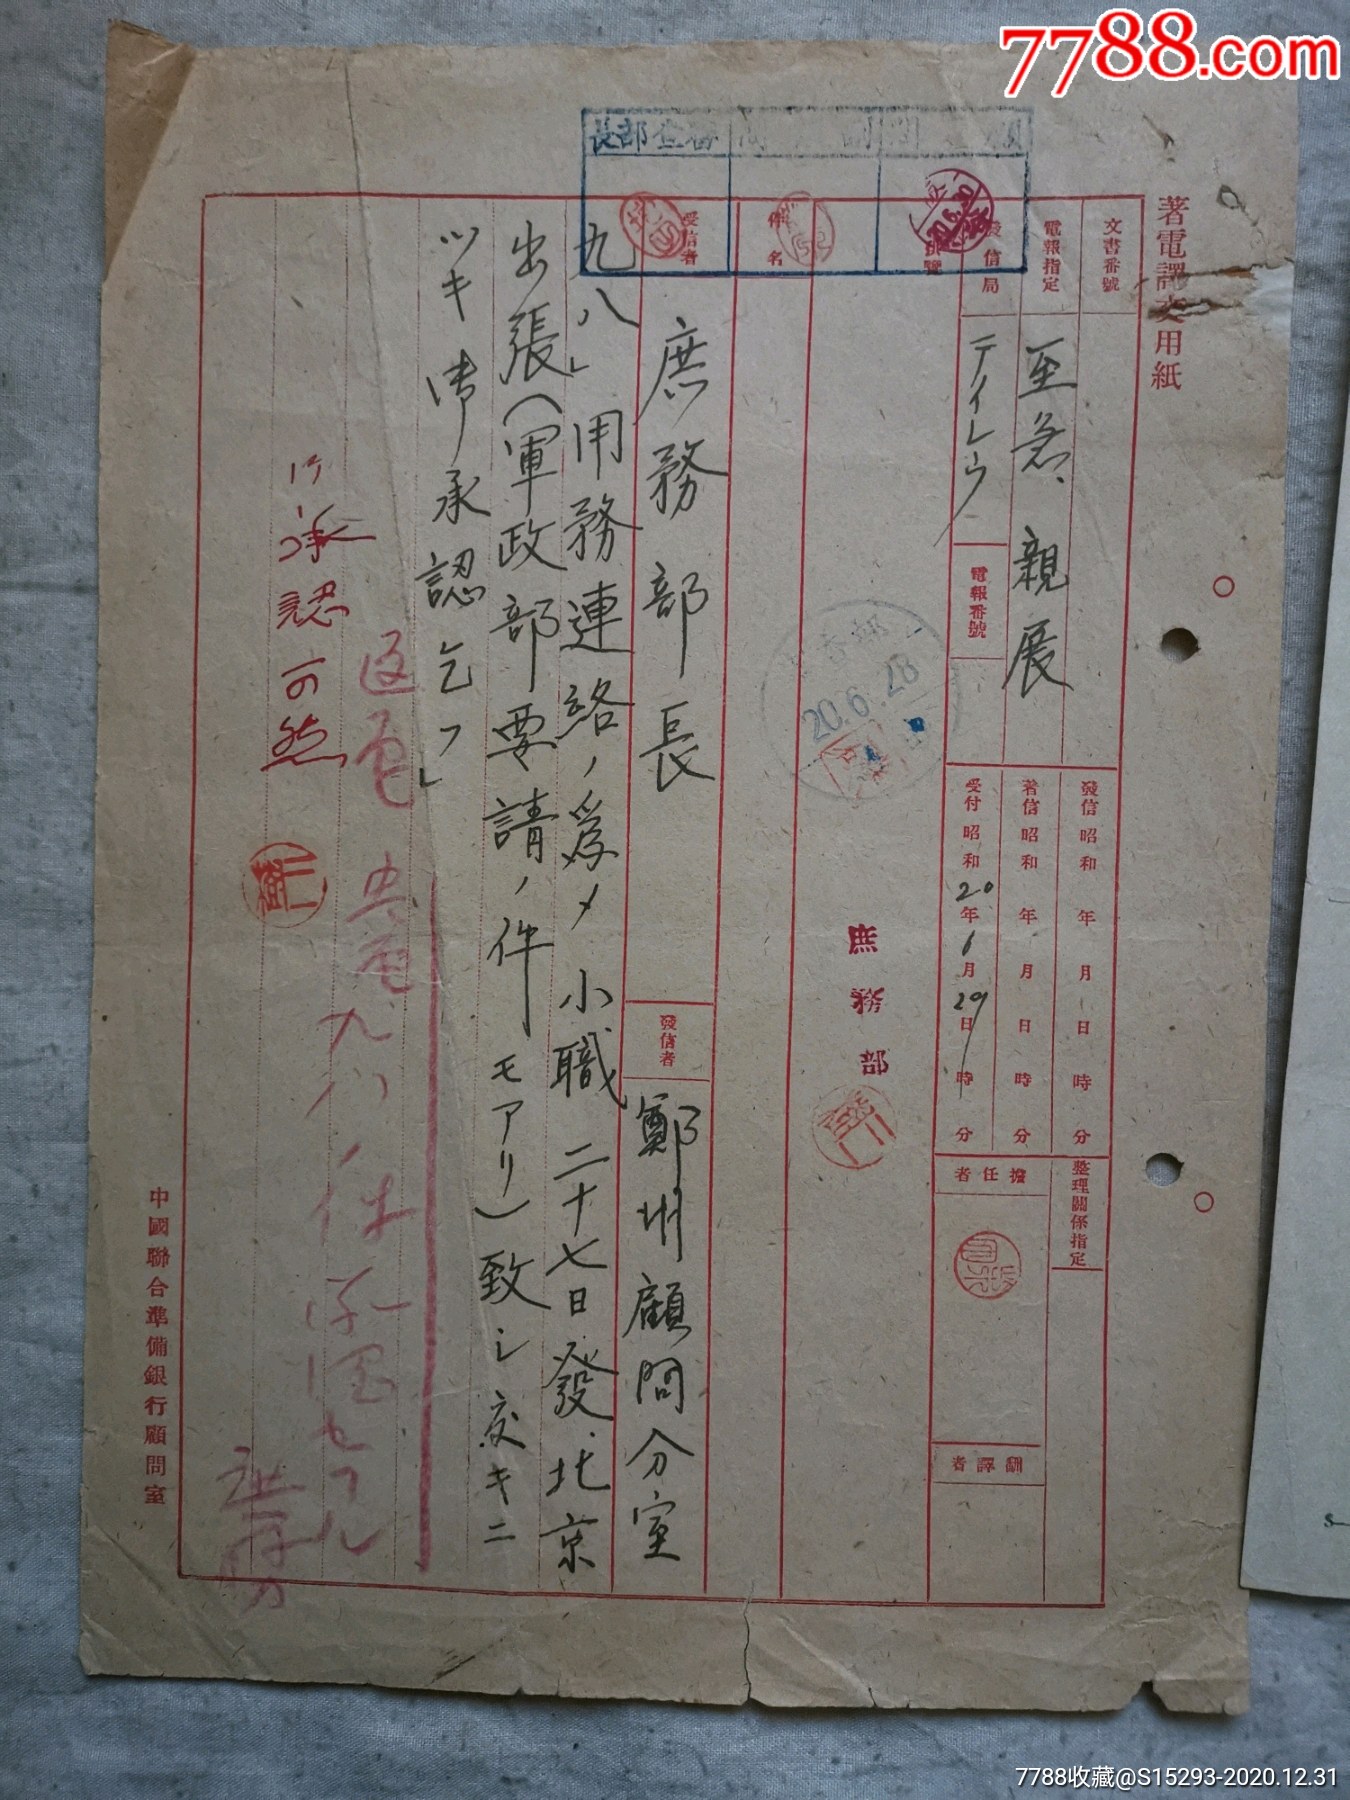 7788.com
著電譯文用紙
文書番號
電報指定
至急、親展
發信局
テイレウ
電報番號
發信 昭和 年 月 日 時 分
著信 昭和 年 月 日 時 分
受付 昭和 20年 6月 29日 時 分
整理關係指定
擔任者
飜譯者
審査部長
20.6.28
庶務部
件名
受信者
庶務部長
發信者
鄭州顧問分室
九八、用務連絡ノ為メ小職二十七日發北京
出張(軍政部要請ノ件モアリ)致シ度キニ
ツキ御承認乞フ」
返電 央電九八ノ件承認セラル
承認可然
中國聯合準備銀行顧問室
7788收藏@S15293-2020.12.31